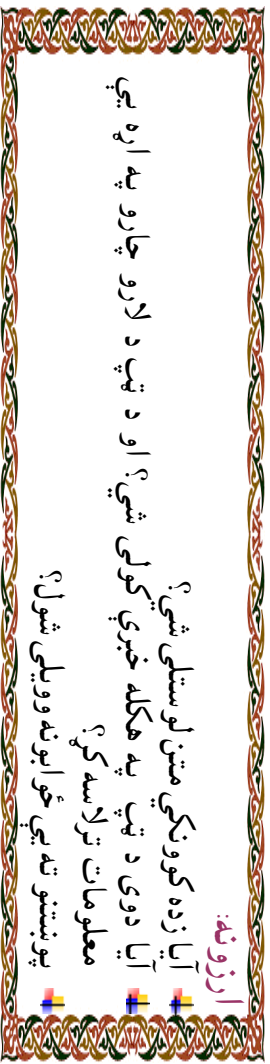 ارزونه:
آیا زده کوونکي متن لوستلی شي؟
آیا دوی د ټپ په هکله خبرې کولی شي؟ او د ټپ د لارو چارو په اړه یې
معلومات ترلاسه کړ؟
پوښتنو ته یې ځوابونه وویلی شول؟